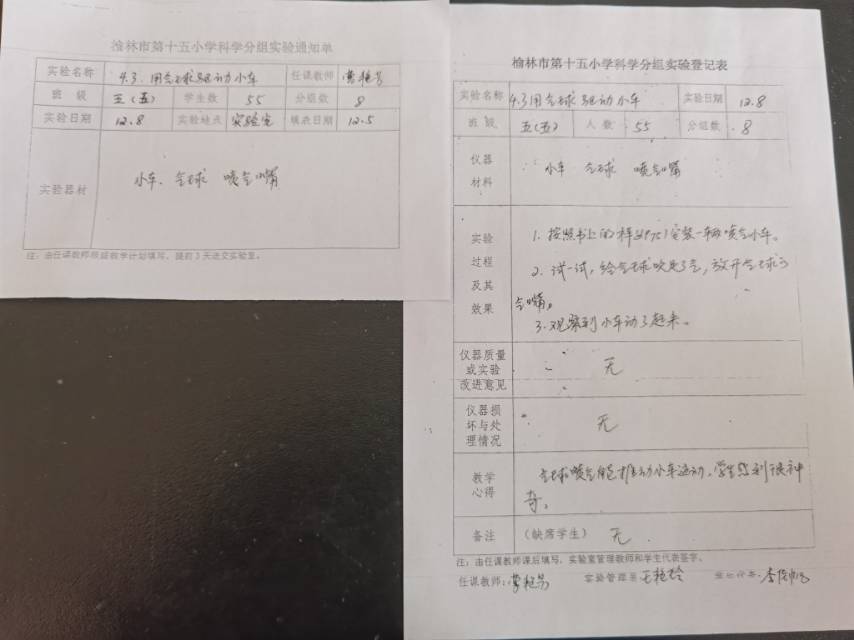 榆林市第十五小学科学分组实验通知单
实验名称 4.3.用气球驱动小车 任课教师
班 级 五(五) 学生数 55 分组数 8
实验日期 12.8 实验地点 实验室 填表日期 12.5
实验器材 小车、气球 喷气嘴
注:由任课教师根据教学计划填写,提前3天送交实验室。
榆林市第十五小学科学分组实验登记表
实验名称 4.3用气球驱动小车 实验日期 12.8
班 级 五(五) 人 数 55 分组数 8
仪器材料 小车 气球 喷气嘴
实验过程及其效果
1. 按照书上的样安装一辆喷气小车。
2. 试一试,给气球吹足了气,放开气球的
气嘴。
3.观察到小车动了起来。
仪器质量或实验改进意见 无
仪器损坏与处理情况 无
教学心得 气球喷气能推动小车运动,学生感到很神
奇。
备注 (缺席学生) 无
注:由任课教师课后填写,实验室管理教师和学生代表签字。
任课教师: 实验管理员 王艳玲